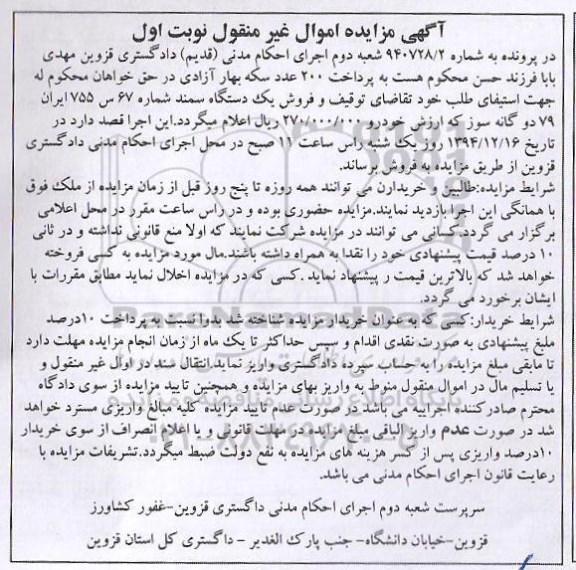 آگهی مزایده اموال غیر منقول نوبت اول
در پرونده به شماره ۹۴۰۷۲۸/۲ شعبه دوم اجرای احکام مدنی (قدیم) دادگستری قزوین مهدی
بابا فرزند حسن محکوم هست به پرداخت ۲۰۰ عدد سکه بهار آزادی در حق خواهان محکوم له
جهت استیفای طلب خود تقاضای توقیف و فروش یک دستگاه سمند شماره ۶۷ س ۷۵۵ ایران
۷۹ دو گانه سوز که ارزش خودرو ۲۷۰/۰۰۰/۰۰۰ ریال اعلام میگردد.این اجرا قصد دارد در
تاریخ ۱۳۹۴/۱۲/۱۶ روز یک شنبه راس ساعت ۱۱ صبح در محل اجرای احکام مدنی دادگستری
قزوین از طریق مزایده به فروش برساند.
شرایط مزایده:طالبین و خریدارن می توانند همه روزه تا پنج روز قبل از زمان مزایده از ملک فوق
با همانگی این اجرا بازدید نمایند.مزایده حضوری بوده و در راس ساعت مقرر در محل اعلامی
برگزار می گردد.کسانی می توانند در مزایده شرکت نمایند که اولا منع قانونی نداشته و در ثانی
۱۰ درصد قیمت پیشنهادی خود را نقدا به همراه داشته باشند.مال مورد مزایده به کسی فروخته
خواهد شد که بالاترین قیمت ر پیشنهاد نماید .کسی که در مزایده اخلال نماید مطابق مقررات با
ایشان برخورد می گردد.
شرایط خریدار:کسی که به عنوان خریدار مزایده شناخته شد بدوا نسبت به پرداخت ۱۰درصد
ملبغ پیشنهادی به صورت نقدی اقدام و سپس حداکثر تا یک ماه از زمان انجام مزایده مهلت دارد
تا مابقی مبلغ مزایده را به حساب سپرده دادگستری واریز نماید.انتقال سند در اوال غیر منقول و
یا تسلیم مال در اموال منقول منوط به واریز بهای مزایده و همچنین تایید مزایده از سوی دادگاه
محترم صادرکننده اجراییه می باشد در صورت عدم تایید مزایده کلیه مبالغ واریزی مسترد خواهد
شد در صورت عدم واریز الباقی مبلغ مزایده در مهلت قانونی و یا اعلام انصراف از سوی خریدار
۱۰درصد واریزی پس از کسر هزینه های مزایده به نفع دولت ضبط میگردد.تشریفات مزایده با
رعایت قانون اجرای احکام مدنی می باشد.
سرپرست شعبه دوم اجرای احکام مدنی داگستری قزوین-غفور کشاورز
قزوین-خیابان دانشگاه- جنب پارک الغدیر - داگستری کل استان قزوین